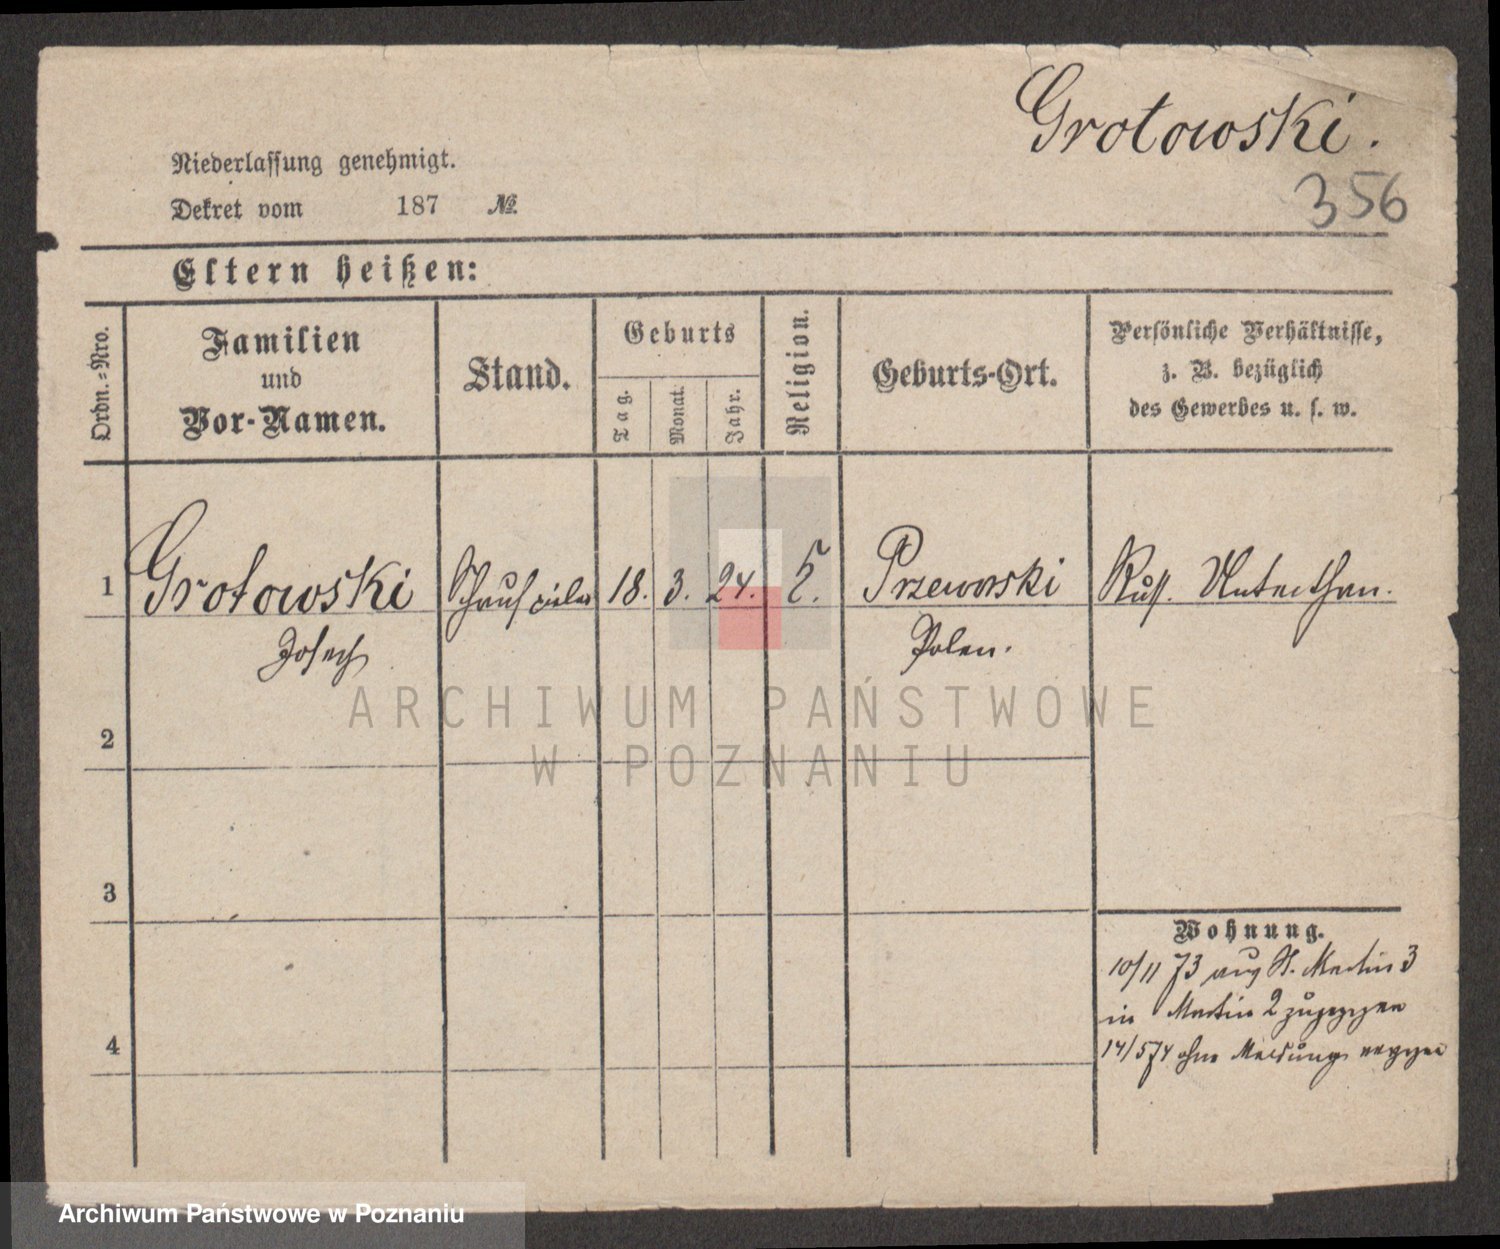 Grotowski.
356
Niederlassung genehmigt.
Dekret vom 187 №
Eltern heißen:
Ordn.-Nro.
Familien
und
Vor-Namen.
Stand.
Geburts
Tag.
Monat.
Jahr.
Religion.
Geburts-Ort.
Persönliche Verhältnisse,
z. B. bezüglich
des Gewerbes u. s. w.
1 Grotowski Schauspieler 18. 3. 24. Przeworski Russ. Unterthan.
Josech Polen.
2
3
4
Wohnung.
10/11 73 aus St. Martin 3
in Martin 2 zugezogen
14/5 74 ohne Meldung verzogen
ARCHIWUM PAŃSTWOWE
W POZNANIU
Archiwum Państwowe w Poznaniu